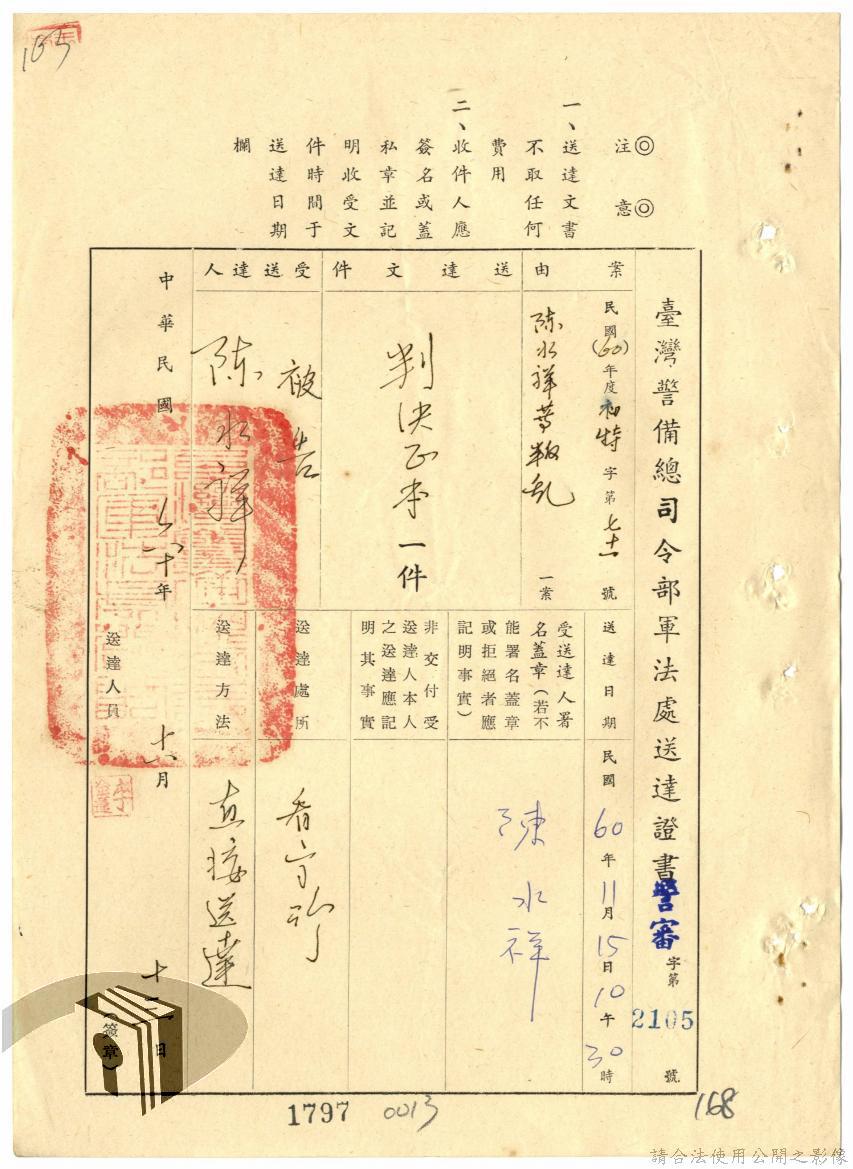 165
◎注意◎
一、送達文書
不取任何
費用
二、收件人應
簽名或蓋
私章並記
明收受文
件時間于
送達日期
欄
臺灣警備總司令部軍法處送達證書警審字第2105號
案由
民國(60)年度初特字第七十一號
陈水祥等叛乱一案
送達文件
判决正本一件
受送達人
被告
陈水祥
送達日期
民國60年11月15日10午30時
受送達人署
名蓋章(若不
能署名蓋章
或拒絕者應
記明事實)
陳水祥
非交付受
送達人本人
之送達應記
明其事實
送達處所
看守所
送達方法
直接送達
中華民國六十年十一月十二日
送達人員
(簽章)
1797
0013
168
請合法使用公開之影像